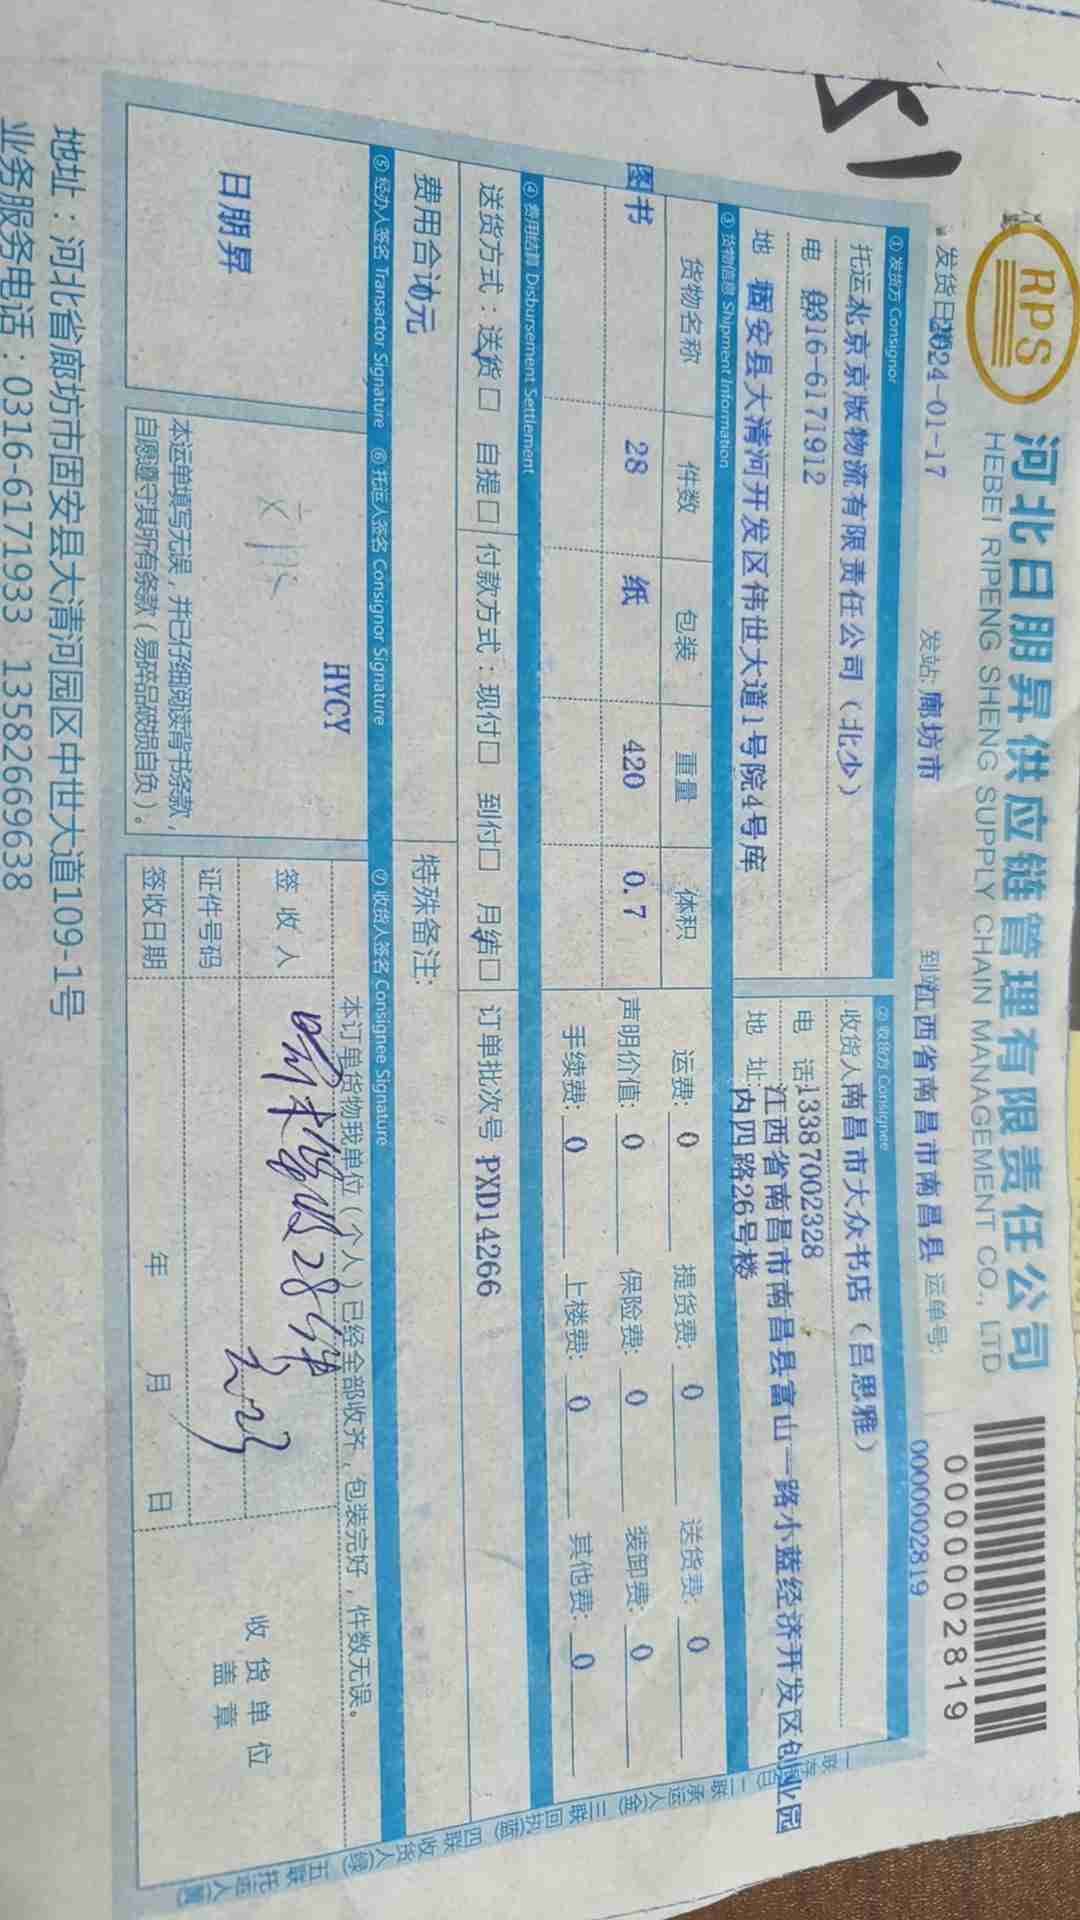 RPS
河北日朋昇供应链管理有限责任公司
HEBEI RIPENG SHENG SUPPLY CHAIN MANAGEMENT CO., LTD
0000002819
发货日期2024-01-17 发站:廊坊市 到站江西省南昌市南昌县 运单号: 0000002819
① 发货方 Consignor
② 收货方 Consignee
托运 北京京版物流有限责任公司（北少）
收货人南昌市大众书店（吕思雅）
电 0316-6171912
电 话:13387002328
地 固安县大清河开发区伟世大道1号院4号库
地 址:江西省南昌市南昌县富山一路小蓝经济开发区创业园
内四路26号楼
③ 货物信息 Shipment Information
货物名称 件数 包装 重量 体积
图书 28 纸 420 0.7
运费: 0 提货费: 0 送货费: 0
声明价值: 0 保险费: 0 装卸费: 0
手续费: 0 上楼费: 0 其他费: 0
④ 费用结算 Disbursement Settlement
送货方式：送货☑ 自提□ 付款方式：现付□ 到付□ 月结☑ 订单批次号 PXD14266
费用合计0元
特殊备注:
⑤ 经办人签名 Transactor Signature
⑥ 托运人签名 Consignor Signature
⑦ 收货人签名 Consignee Signature
日朋昇
HYCY
本运单填写无误，并已仔细阅读背书条款，
自愿遵守其所有条款（易碎品破损自负）。
本订单货物我单位（个人）已经全部收齐，包装完好，件数无误。
签 收 人
28件
证件号码
签收日期 年 月 日
收货单位
盖章
一联存根(白) 二联承运人(金) 三联回执(蓝) 四联收货人(绿) 五联托运人(黄)
地址：河北省廊坊市固安县大清河园区中世大道109-1号
业务服务电话：0316-6171933 13582669638